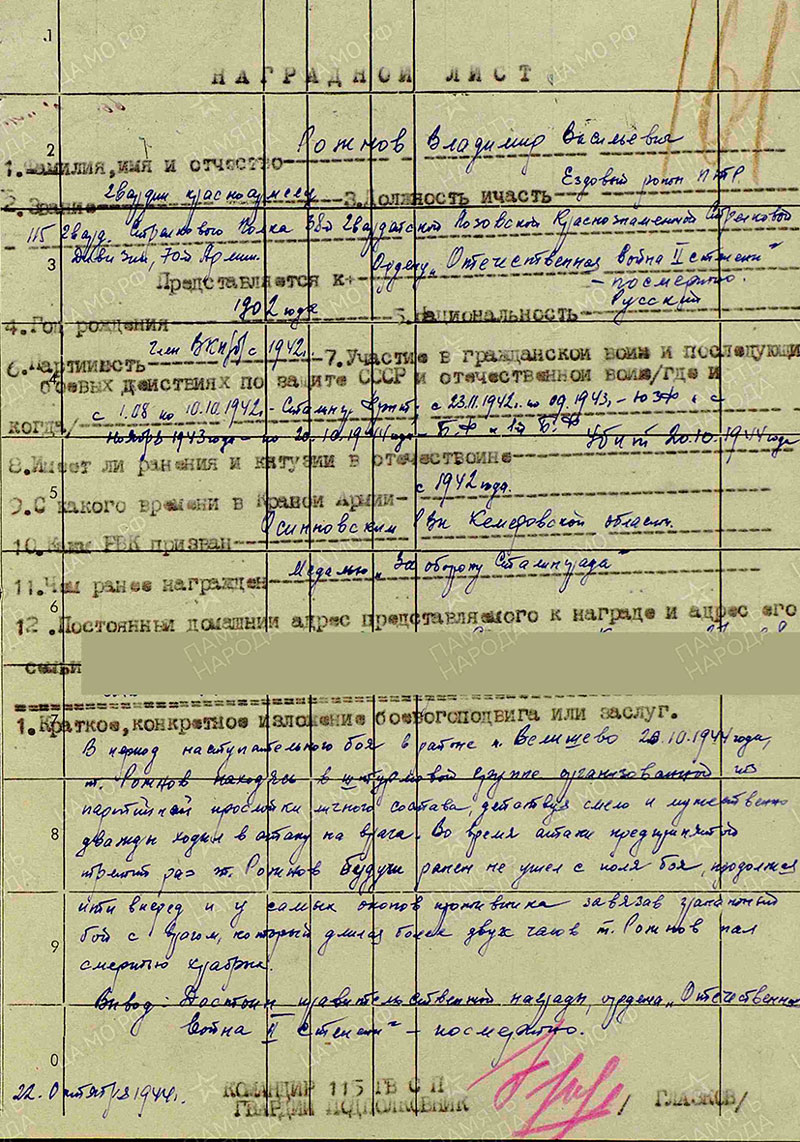 НАГРАДНОЙ ЛИСТ
1.Фамилия,имя и отчество Рожнов Владимир Васильевич
2.Звание гвардии красноармеец 3.Должность ичасть Ездовый роты ПТР
115 гвард. Стрелкового Полка 38й Гвардейской Лозовской Краснознаменной Стрелковой
Дивизии, 70й Армии.
Представляется к Ордену „Отечественная война II степени"
– посмертно.
4.Год рождения 1902 года 5.Национальность Русский
6.Партииность член ВКП(б) с 1942г. 7.Участие в гражданской воин и последующи
боевых действиях по защите СССР и отечественной воин/где и
когда/ с 1.08 по 10.10.1942г.- Сталингр. фронт, с 23.11.1942г. по 09.1943г.- ЮЗФ и с
ноября 1943 года – по 20.10.1944 года – Б.Ф и 1й Б.Ф
8.Имеет ли ранения и кнтузии в отечествоине Убит 20.10.1944 года
9.С какого времени в Краной Армии с 1942 года.
10.Каким РВК призван Осинновским РВК Кемеровской области.
11.Чем ранее награжден Медалью „За оборону Сталинграда"
12.Постоянный домашнии адрес представляемого к награде и адрес его
семьи
1.Краткое,конкретное изложение боевогоподвига или заслуг.
В период наступательного боя в районе п. Велишево 20.10.1944 года,
т. Рожнов находясь в штурмовой группе организованной из
партийной прослойки личного состава, действуя смело и мужественно
дважды ходил в атаку на врага. Во время атаки предпринятой
третий раз т. Рожнов будучи ранен не ушел с поля боя, продолжая
итти вперед и у самых окопов противника завязав гранатный
бой с врагом, который длился более двух часов т. Рожнов пал
смертью храбрых.
Вывод: Достоин правительственной награды, ордена „Отечественная
Война II Степени" – посмертно.
22. Октября 1944г.
КОМАНДИР 115 ГВ С П
ГВАРДИИ ПОДПОЛКОВНИК / ГЛАЗКОВ/